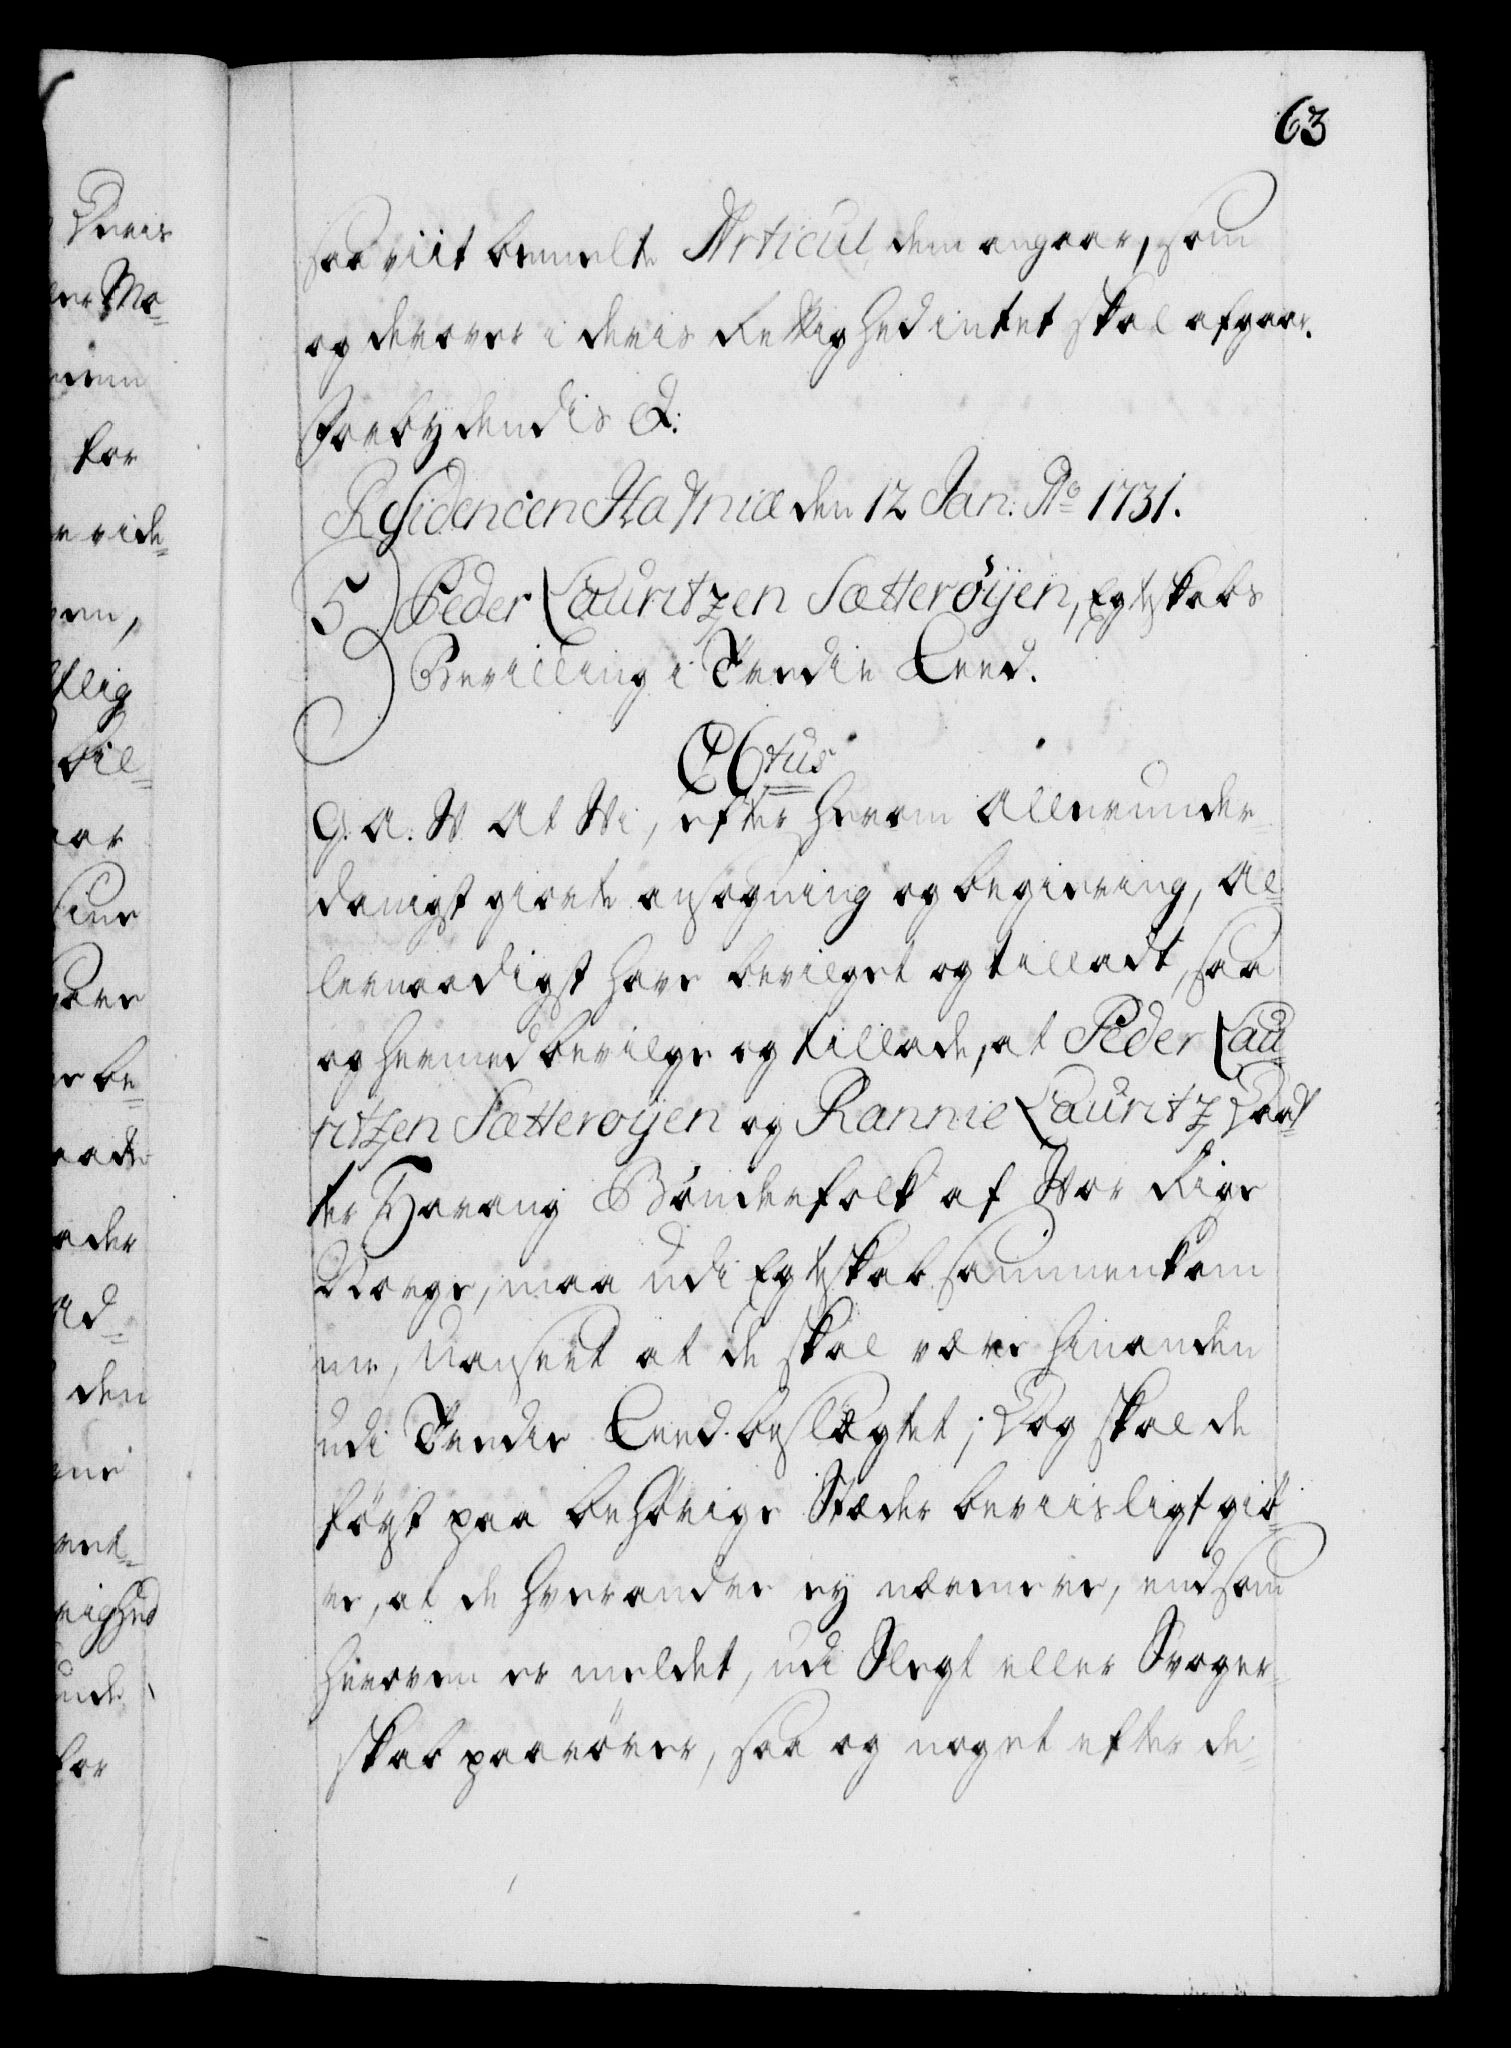 63
saa viit bemelte Articul dem angaar, som
og derover i deris Rettighed intet skal afgaar.
Forbydendis &:
Residencen Hafniæ den 12 Jan: Ao 1731.
5 Peder Lauritzen Sætterøyen, Egteskabs
Bevilling i Tredie Leed.
C6tus
G: A: V. At Vi, efter herom allerunder-
danigst giorte ansøgning og begiering, al-
lernaadigst have bevilget og tilladt, saa
og hermed bevilge og tillade, at Peder Lau-
ritzen Sætterøyen og Rannie Lauritz Daat-
ter Havang Bønderfolk af Vor Rige
Norge, maa udi Egteskab sammenkom
me, Uanseet at de skal være hinanden
udi Tredie Leed beslægtet; Dog skal de
først paa behørige Stæder beviisligt giø-
re, at de hverandre ey nærmere, end som
hieroven er meldet, udi Slegt eller Svoger-
skab paarører, saa og noget efter de-
Deris
for
den